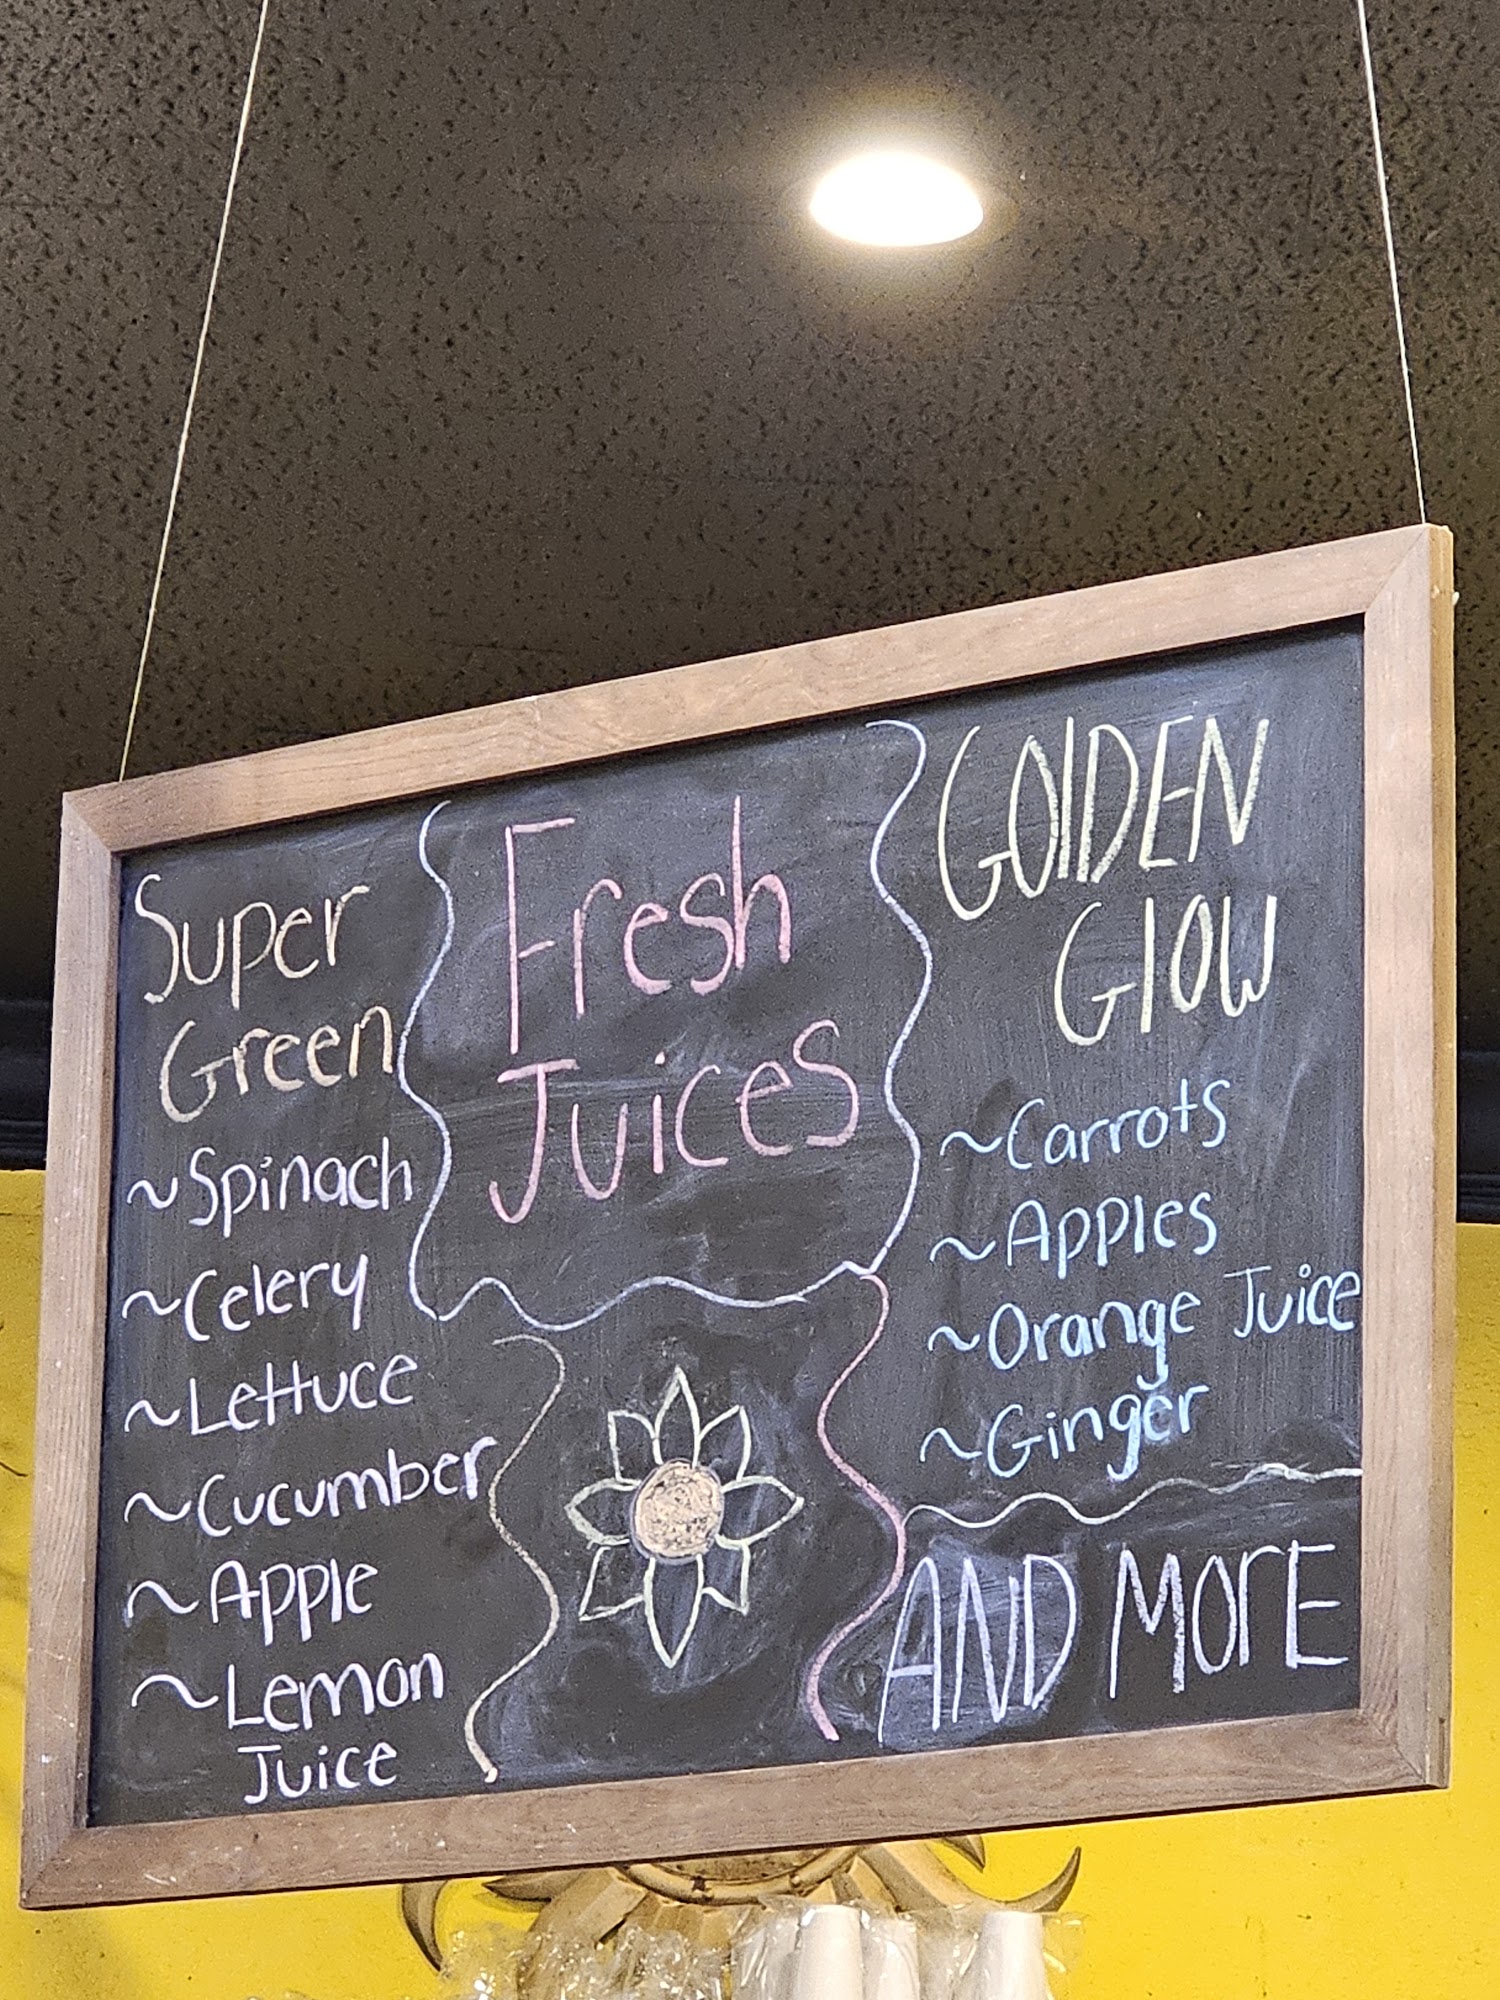 Super
Green
~Spinach
~Celery
~Lettuce
~Cucumber
~Apple
~Lemon
Juice
Fresh
Juices
GOlDEN
GlOW
~Carrots
~Apples
~Orange Juice
~Ginger
AND MOrE